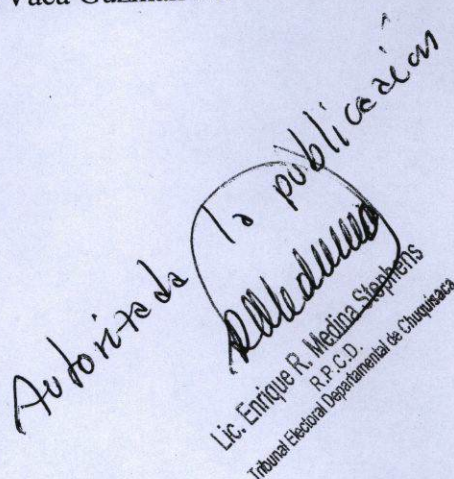 Vaca Guzmán
Autorizada la publicación
Lic. Enrique R. Medina Stephens
R.P.C.D.
Tribunal Electoral Departamental de Chuquisaca